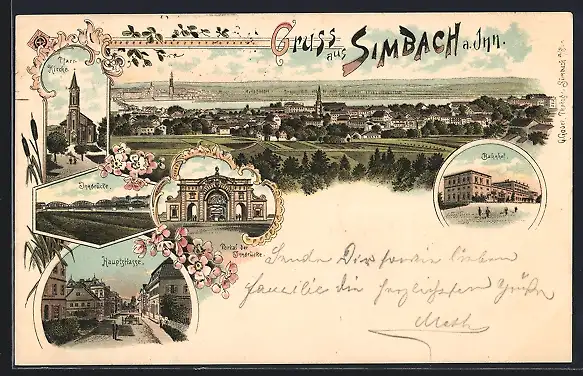 Gruss aus SIMBACH a. Inn.
Pfarr-
Kirche.
Innbrücke.
Portal der
Innbrücke.
Hauptstrasse.
Bahnhof.
Sende Dir sowie lieben
Familie die herzlichsten Grüße